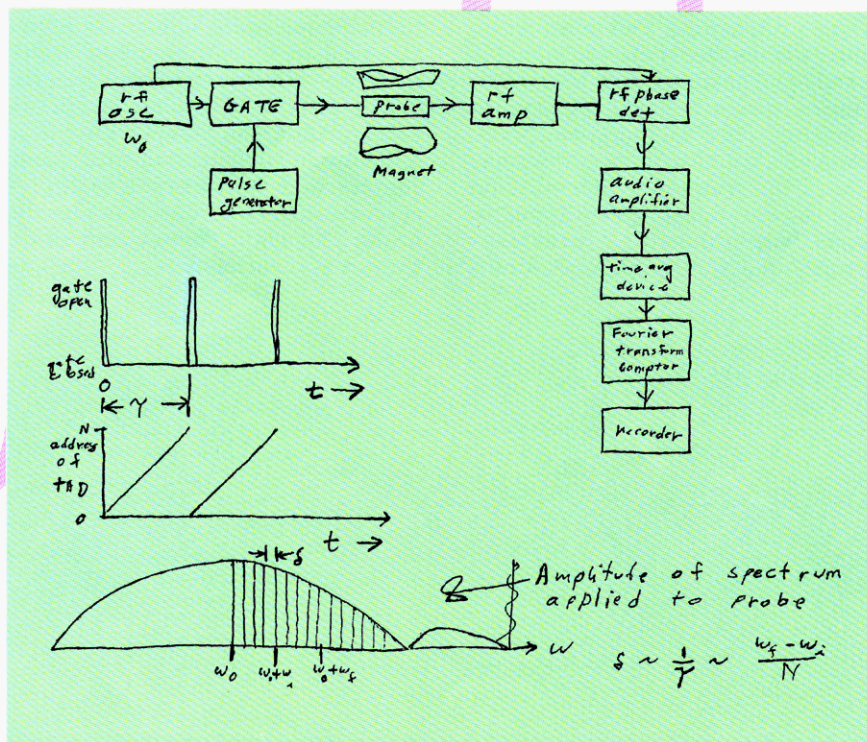 rf
osc
GATE
Probe
rf
amp
rf phase
det
ω0
Magnet
Pulse
generator
audio
amplifier
time avg
device
Fourier
transform
Comptor
Recorder
gate
open
gate
closed
0
t →
γ
N
address
of
TAD
0
t →
δ
Amplitude of spectrum
applied to probe
ω0
ω0+ωi
ω0+ωf
ω
δ ~ 1/γ ~ (ωf - ωi)/N